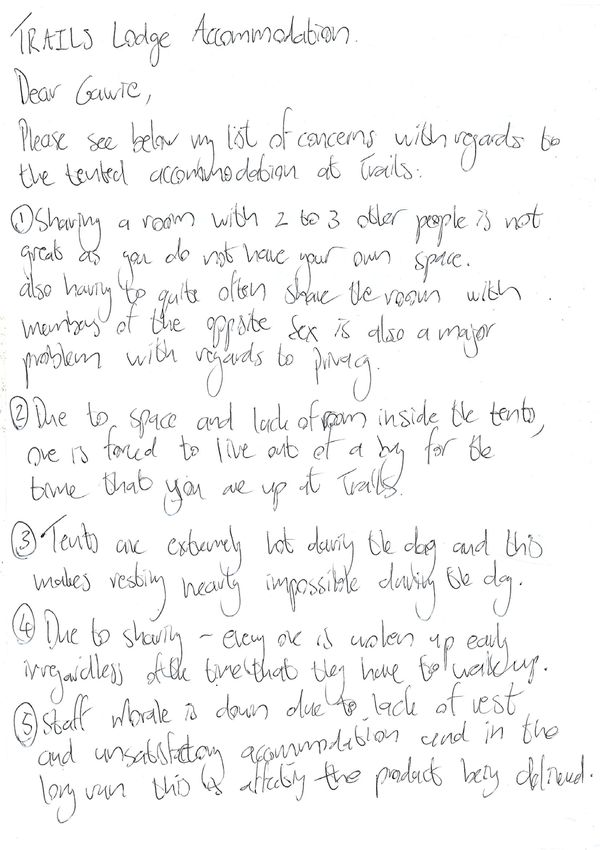 TRAILS Lodge Accommodation.
Dear Gawie,
Please see below my list of concerns with regards to
the tented accommodation at Trails.
① Sharing a room with 2 to 3 other people is not
great as you do not have your own space.
also having to quite often share the room with
members of the opposite sex is also a major
problem with regards to privacy.
② Due to space and lack of room inside the tents,
one is forced to live out of a bag for the
time that you are up at Trails.
③ Tents are extremely hot during the day and this
makes resting nearly impossible during the day.
④ Due to sharing - every one is woken up early
irregardless of the time that they have to wake up.
⑤ Staff morale is down due to lack of rest
and unsatisfactory accommodation and in the
long run this is affecting the product being delivered.